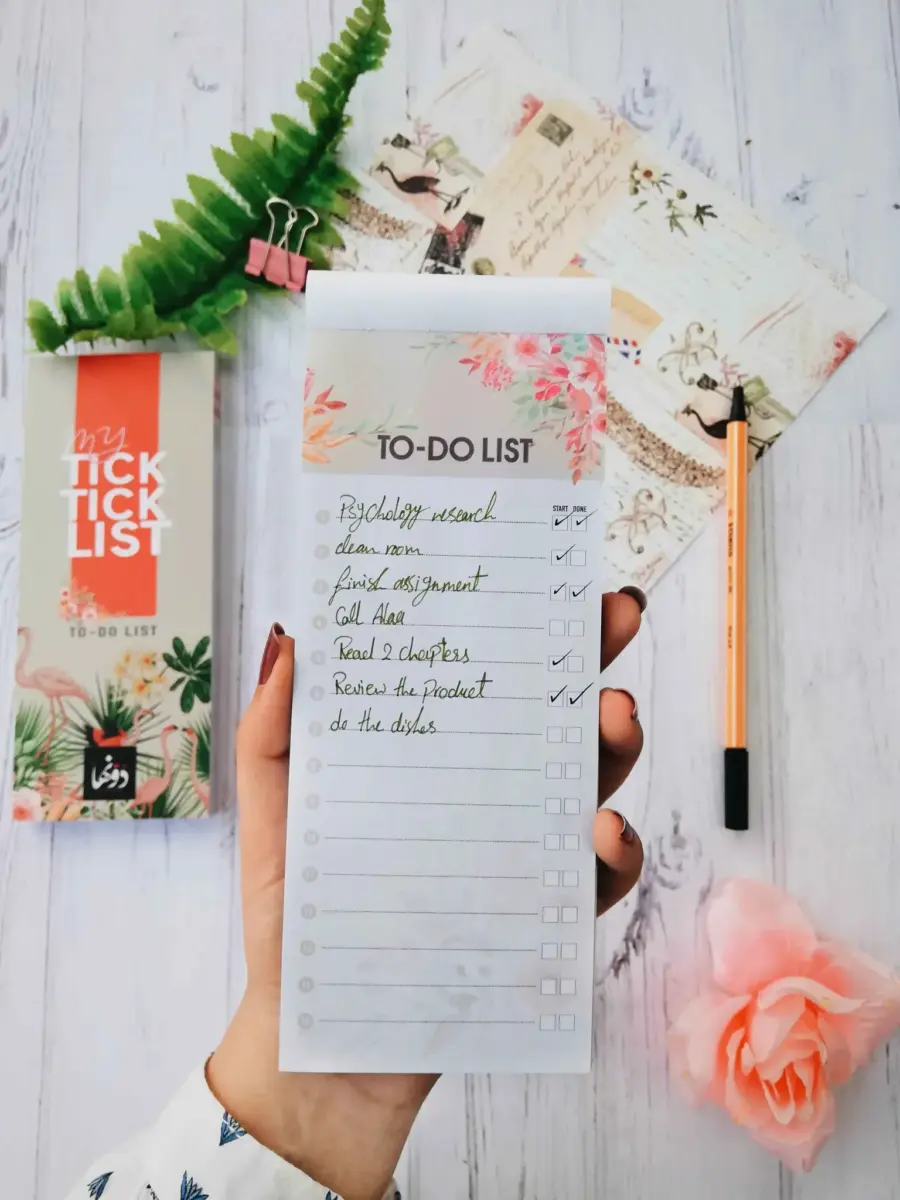 my
TICK
TICK
LIST
TO-DO LIST
دونها
TO-DO LIST
START DONE
1 Psychology research
2 clean room
3 finish assignment
4 Call Alaa
5 Read 2 chapters
6 Review the product
7 do the dishes
8
9
10
11
12
13
14
15